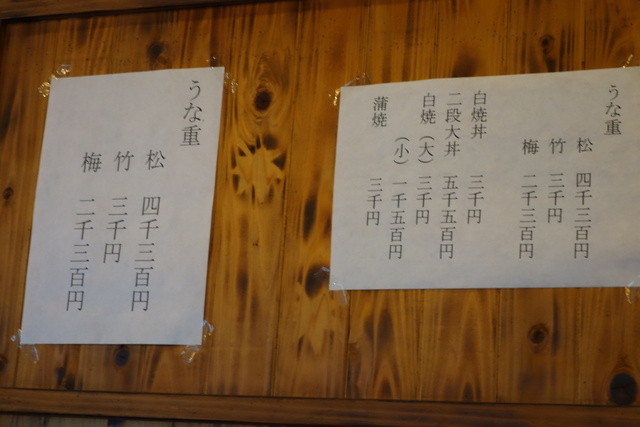 うな重
松 四千三百円
竹 三千円
梅 二千三百円
うな重
松 四千三百円
竹 三千円
梅 二千三百円
白焼丼 三千円
二段大丼 五千五百円
白焼(大) 三千円
(小) 一千五百円
蒲焼 三千円